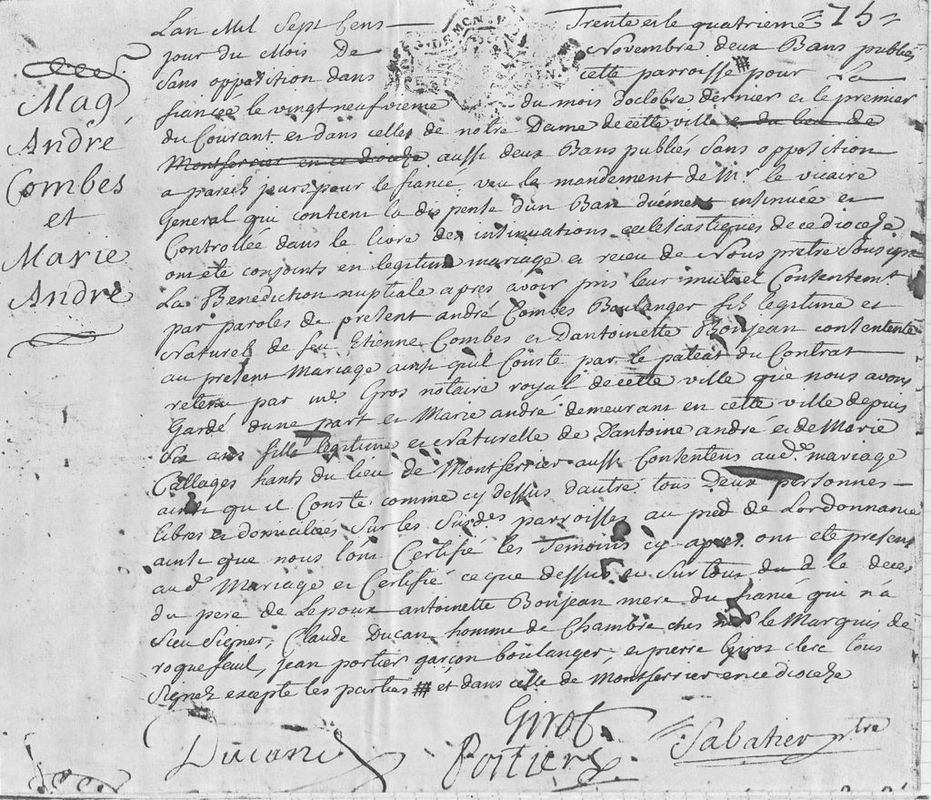 75
Mag
André
Combes
et
Marie
André
Lan Mil Sept Cens Trente et le quatrieme
jour du Mois de Novembre deux Bans publiés
Sans opposition dans cette parroisse # pour La
fiancée le vingt neufvieme du mois doctobre dernier et le premier
du Courant et dans celles de notre Dame de cette ville et du lieu de
Montferrier en ce dioceze aussi deux Bans publiés Sans opposition
a pareils jours pour le fiancé, veu le mandement de Mr le vicaire
General qui contient la dispense dun Ban duement insinuée et
Controllée dans le livre des insinuations ecclesiastiques de ce dioceze
ont ete conjoints en legitime mariage et receu de Nous pretre Soussigné
La Benediction nuptiale apres avoir pris leur mutuel Consentemt
par paroles de present andré Combes Boulanger fils legitime et
Naturel de feu Etienne Combes et Dantoinette Bonjean consentente
au present Mariage ainsi quil Conste par le du Contrat
retenu par me Gros notaire royal de cette ville que nous avons
Gardé dune part et Marie andré demeurant en cette ville depuis
ans fille legitime et Naturelle de Dantoine andré et de Marie
Callages hants du lieu de Montferrier aussi Contentens aud. mariage
ainsi qu il Conste comme cy dessus dautre tous deux personnes
libres et domiciliées Sur les Susdes parroisses au pied de Lordonnance
ainsi que nous lont Certifié les Temoins cy apres ont ete present
aud. Mariage et Certifié ce que dessus et Sur tous du d le deces
du pere de Lepoux antoinette Bonjean mere du fiancé qui n'a
Sceu Signer, Claude Ducan homme de Chambre ches le Marquis de
roquefeuil, jean portier garçon boulanger, et pierre Girot clerc tous
Signés excepté les parties # et dans celle de Montferrier en ce dioceze
Girot
Ducan Portier Sabatier ptre